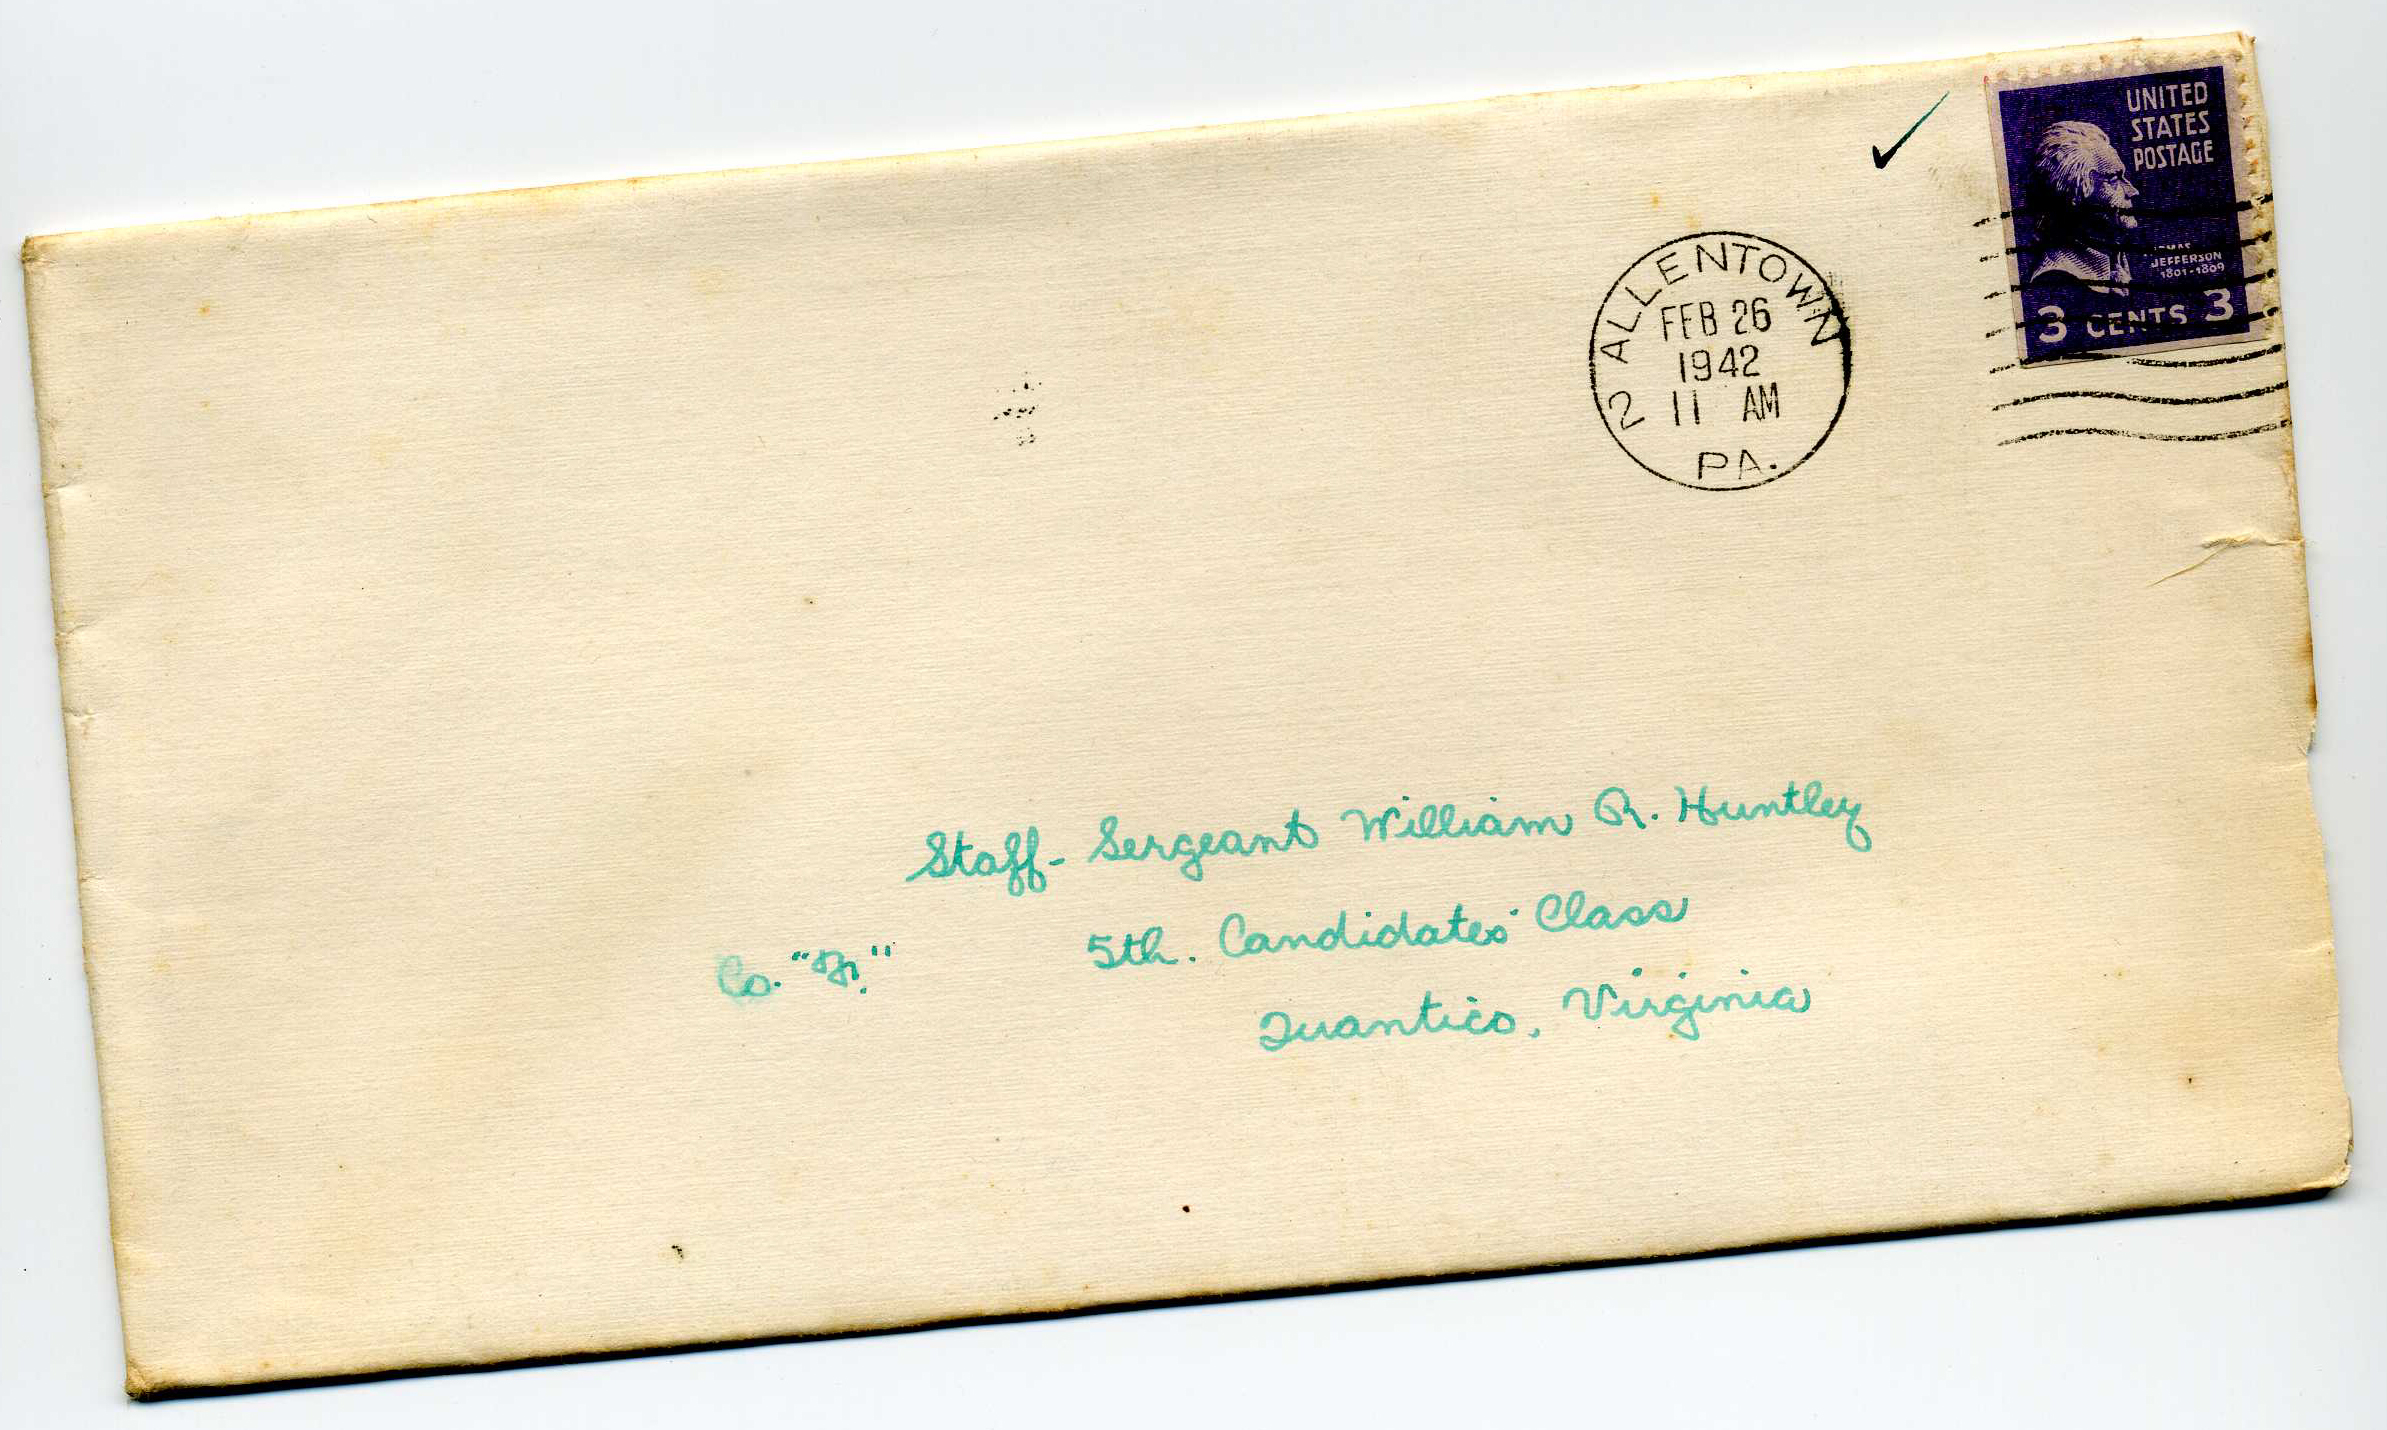 UNITED
STATES
POSTAGE
JEFFERSON
1801-1809
3 CENTS 3
2 ALLENTOWN
FEB 26
1942
11 AM
PA.
Staff-Sergeant William R. Huntley
5th. Candidates' Class
Co.
Quantico, Virginia